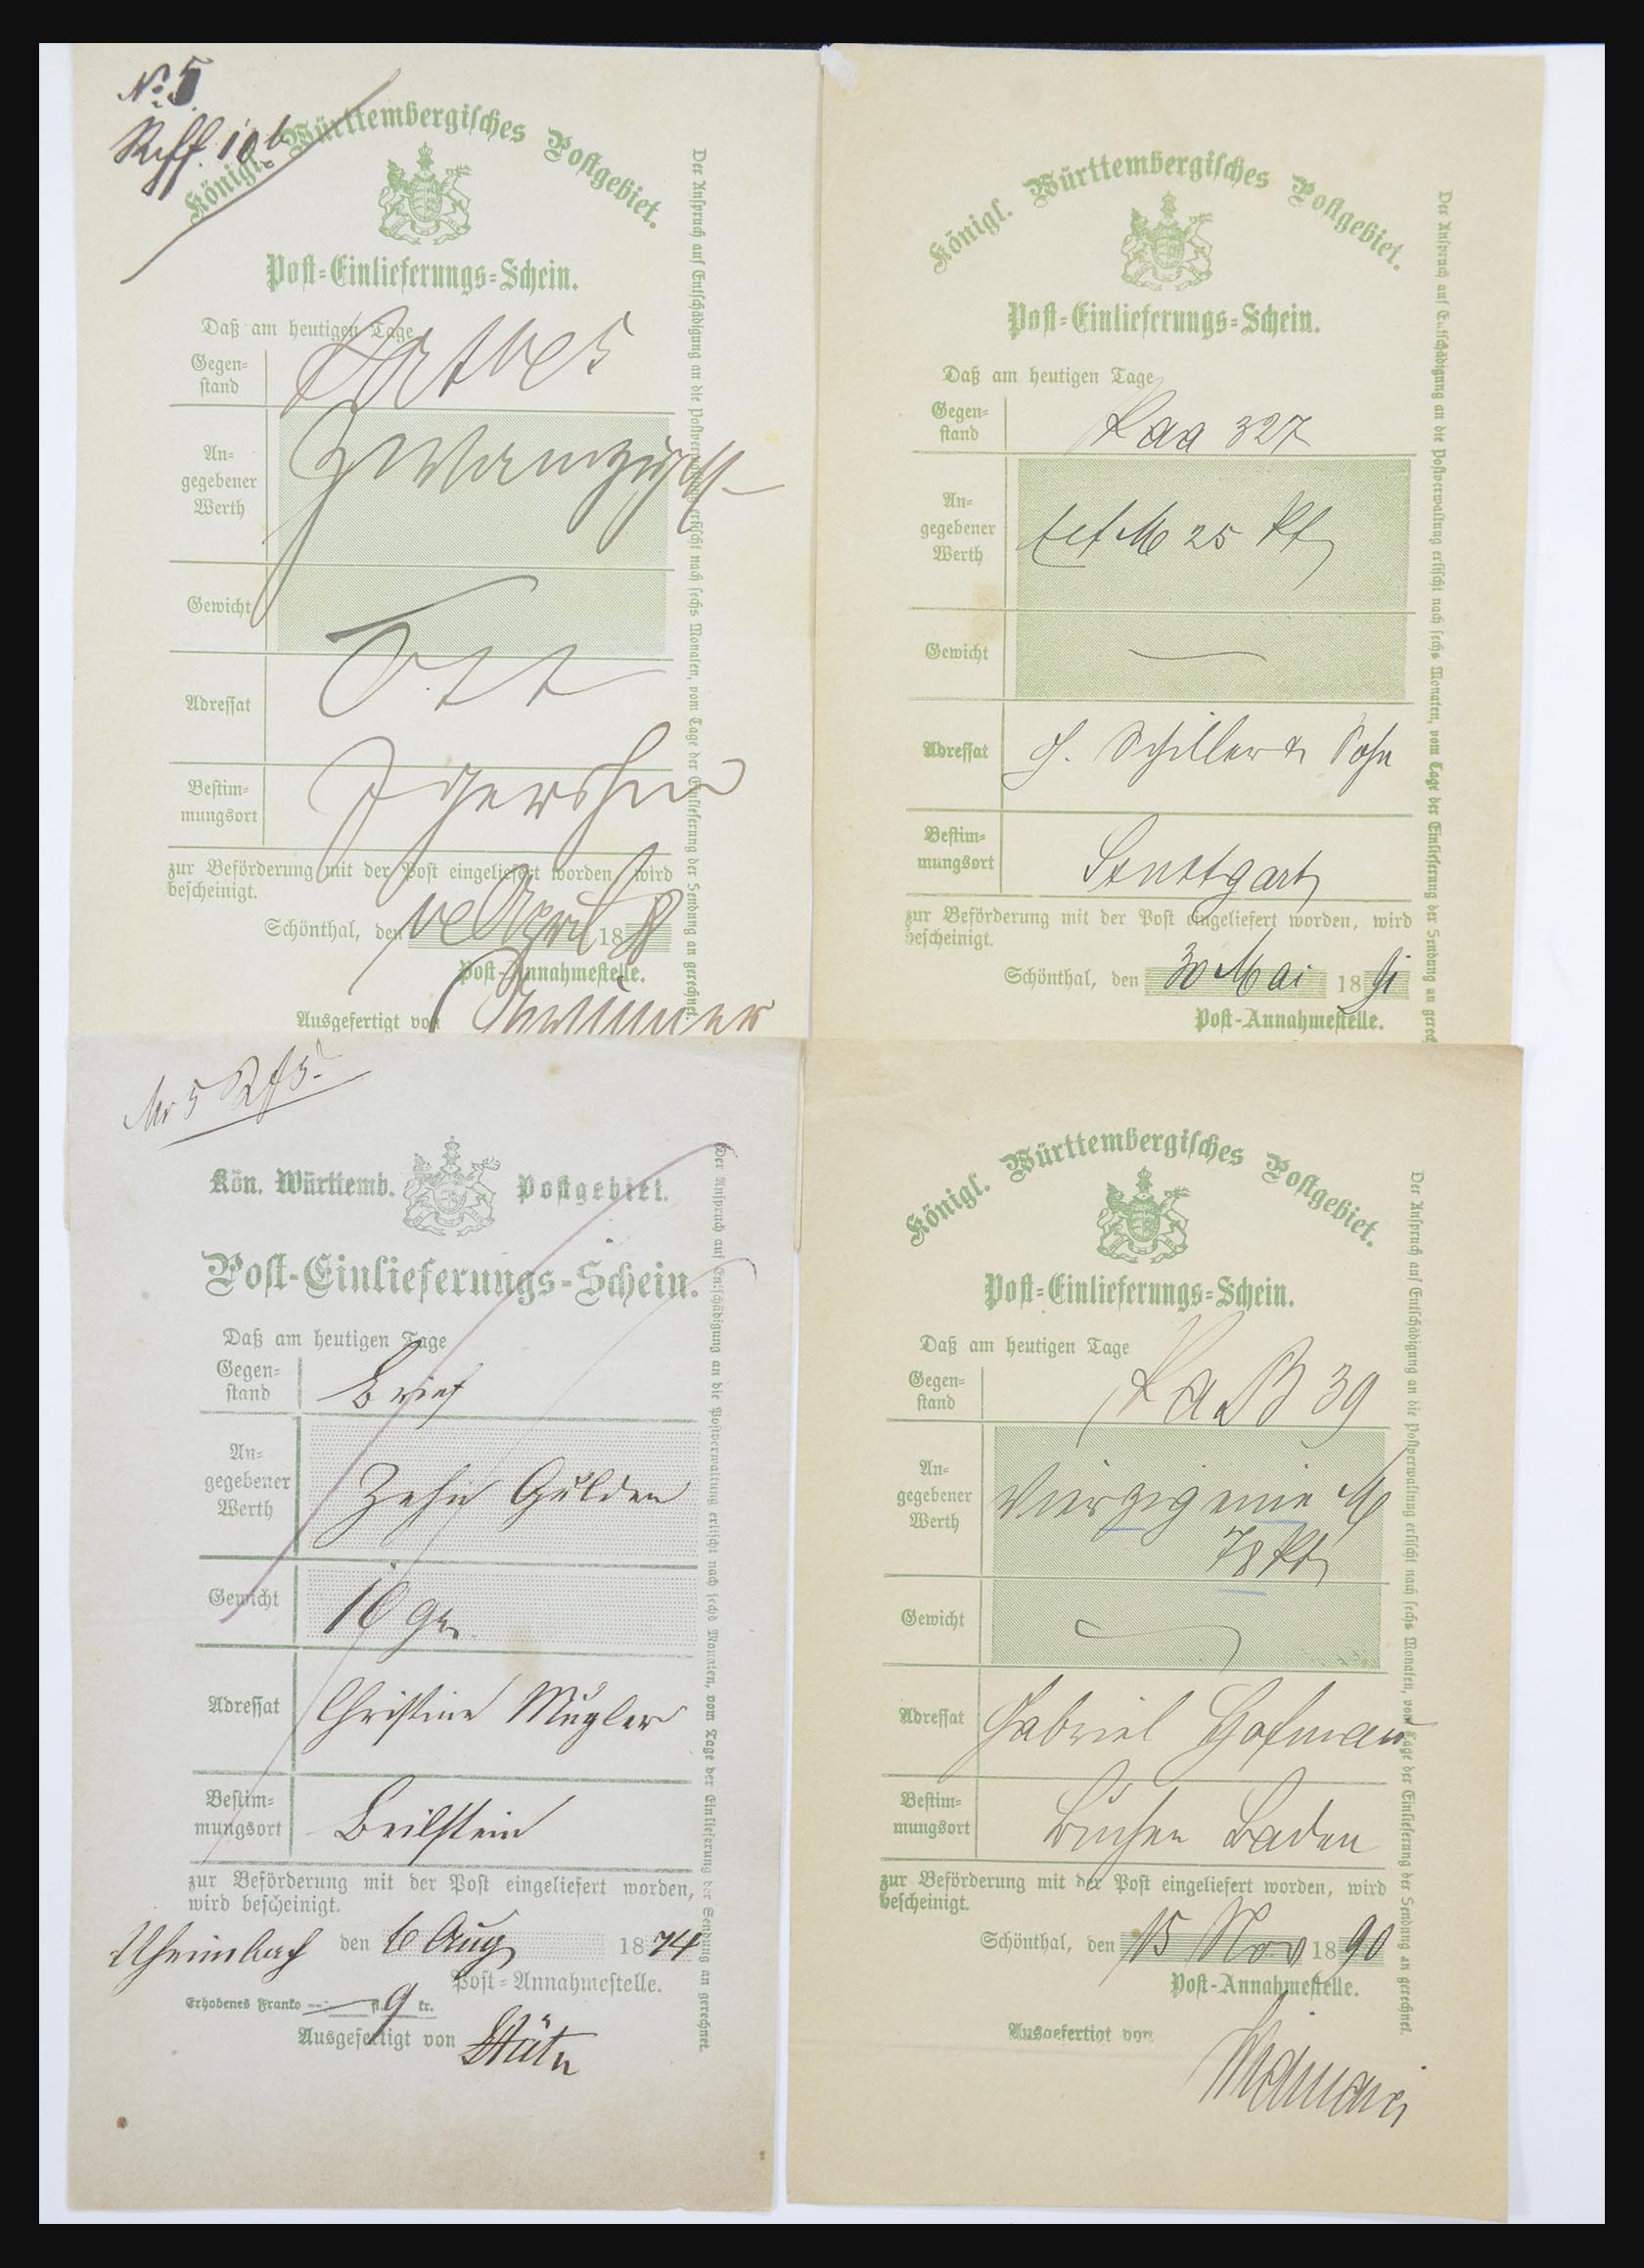 No. 5.
Königl. Württembergisches Postgebiet.
Post-Einlieferungs-Schein.
Daß am heutigen Tage
Gegen-
stand
An-
gegebener
Werth
Gewicht
Adressat Ott
Bestim-
mungsort Igersheim
zur Beförderung mit der Post eingeliefert worden, wird
bescheinigt.
Schönthal, den April 18
Post-Annahmestelle.
Ausgefertigt von
Der Anspruch auf Entschädigung an die Postverwaltung erlischt nach sechs Monaten, vom Tage der Einlieferung der Sendung an gerechnet.
Königl. Württembergisches Postgebiet.
Post-Einlieferungs-Schein.
Daß am heutigen Tage
Gegen-
stand 327
An-
gegebener
Werth M 25 Pf
Gewicht
Adressat Schiller & Sohn
Bestim-
mungsort Stuttgart
zur Beförderung mit der Post eingeliefert worden, wird
bescheinigt.
Schönthal, den 30 Mai 18 91
Post-Annahmestelle.
Der Anspruch auf Entschädigung an die Postverwaltung erlischt nach sechs Monaten, vom Tage der Einlieferung der Sendung an gerech
Nr 5
Kön. Württemb. Postgebiet.
Post-Einlieferungs-Schein.
Daß am heutigen Tage
Gegen-
stand Brief
An-
gegebener
Werth Zehn Gulden
Gewicht 10 gr.
Adressat Christine Mugler
Bestim-
mungsort Beilstein
zur Beförderung mit der Post eingeliefert worden,
wird bescheinigt.
den 6 Aug 18 74
Post-Annahmestelle.
Erhobenes Franko fl. 9 kr.
Ausgefertigt von
Der Anspruch auf Entschädigung an die Postverwaltung erlischt nach sechs Monaten, vom Tage der Einlieferung der Sendung an gerechnet.
Königl. Württembergisches Postgebiet.
Post-Einlieferungs-Schein.
Daß am heutigen Tage
Gegen-
stand 39
An-
gegebener
Werth Vierzig eine M
78 Pf
Gewicht
Adressat Gabriel Hofmann
Bestim-
mungsort Buchen Baden
zur Beförderung mit der Post eingeliefert worden, wird
bescheinigt.
Schönthal, den 15 Nov 18 90
Post-Annahmestelle.
Ausgefertigt von
Der Anspruch auf Entschädigung an die Postverwaltung erlischt nach sechs Monaten, vom Tage der Einlieferung der Sendung an gerechnet.